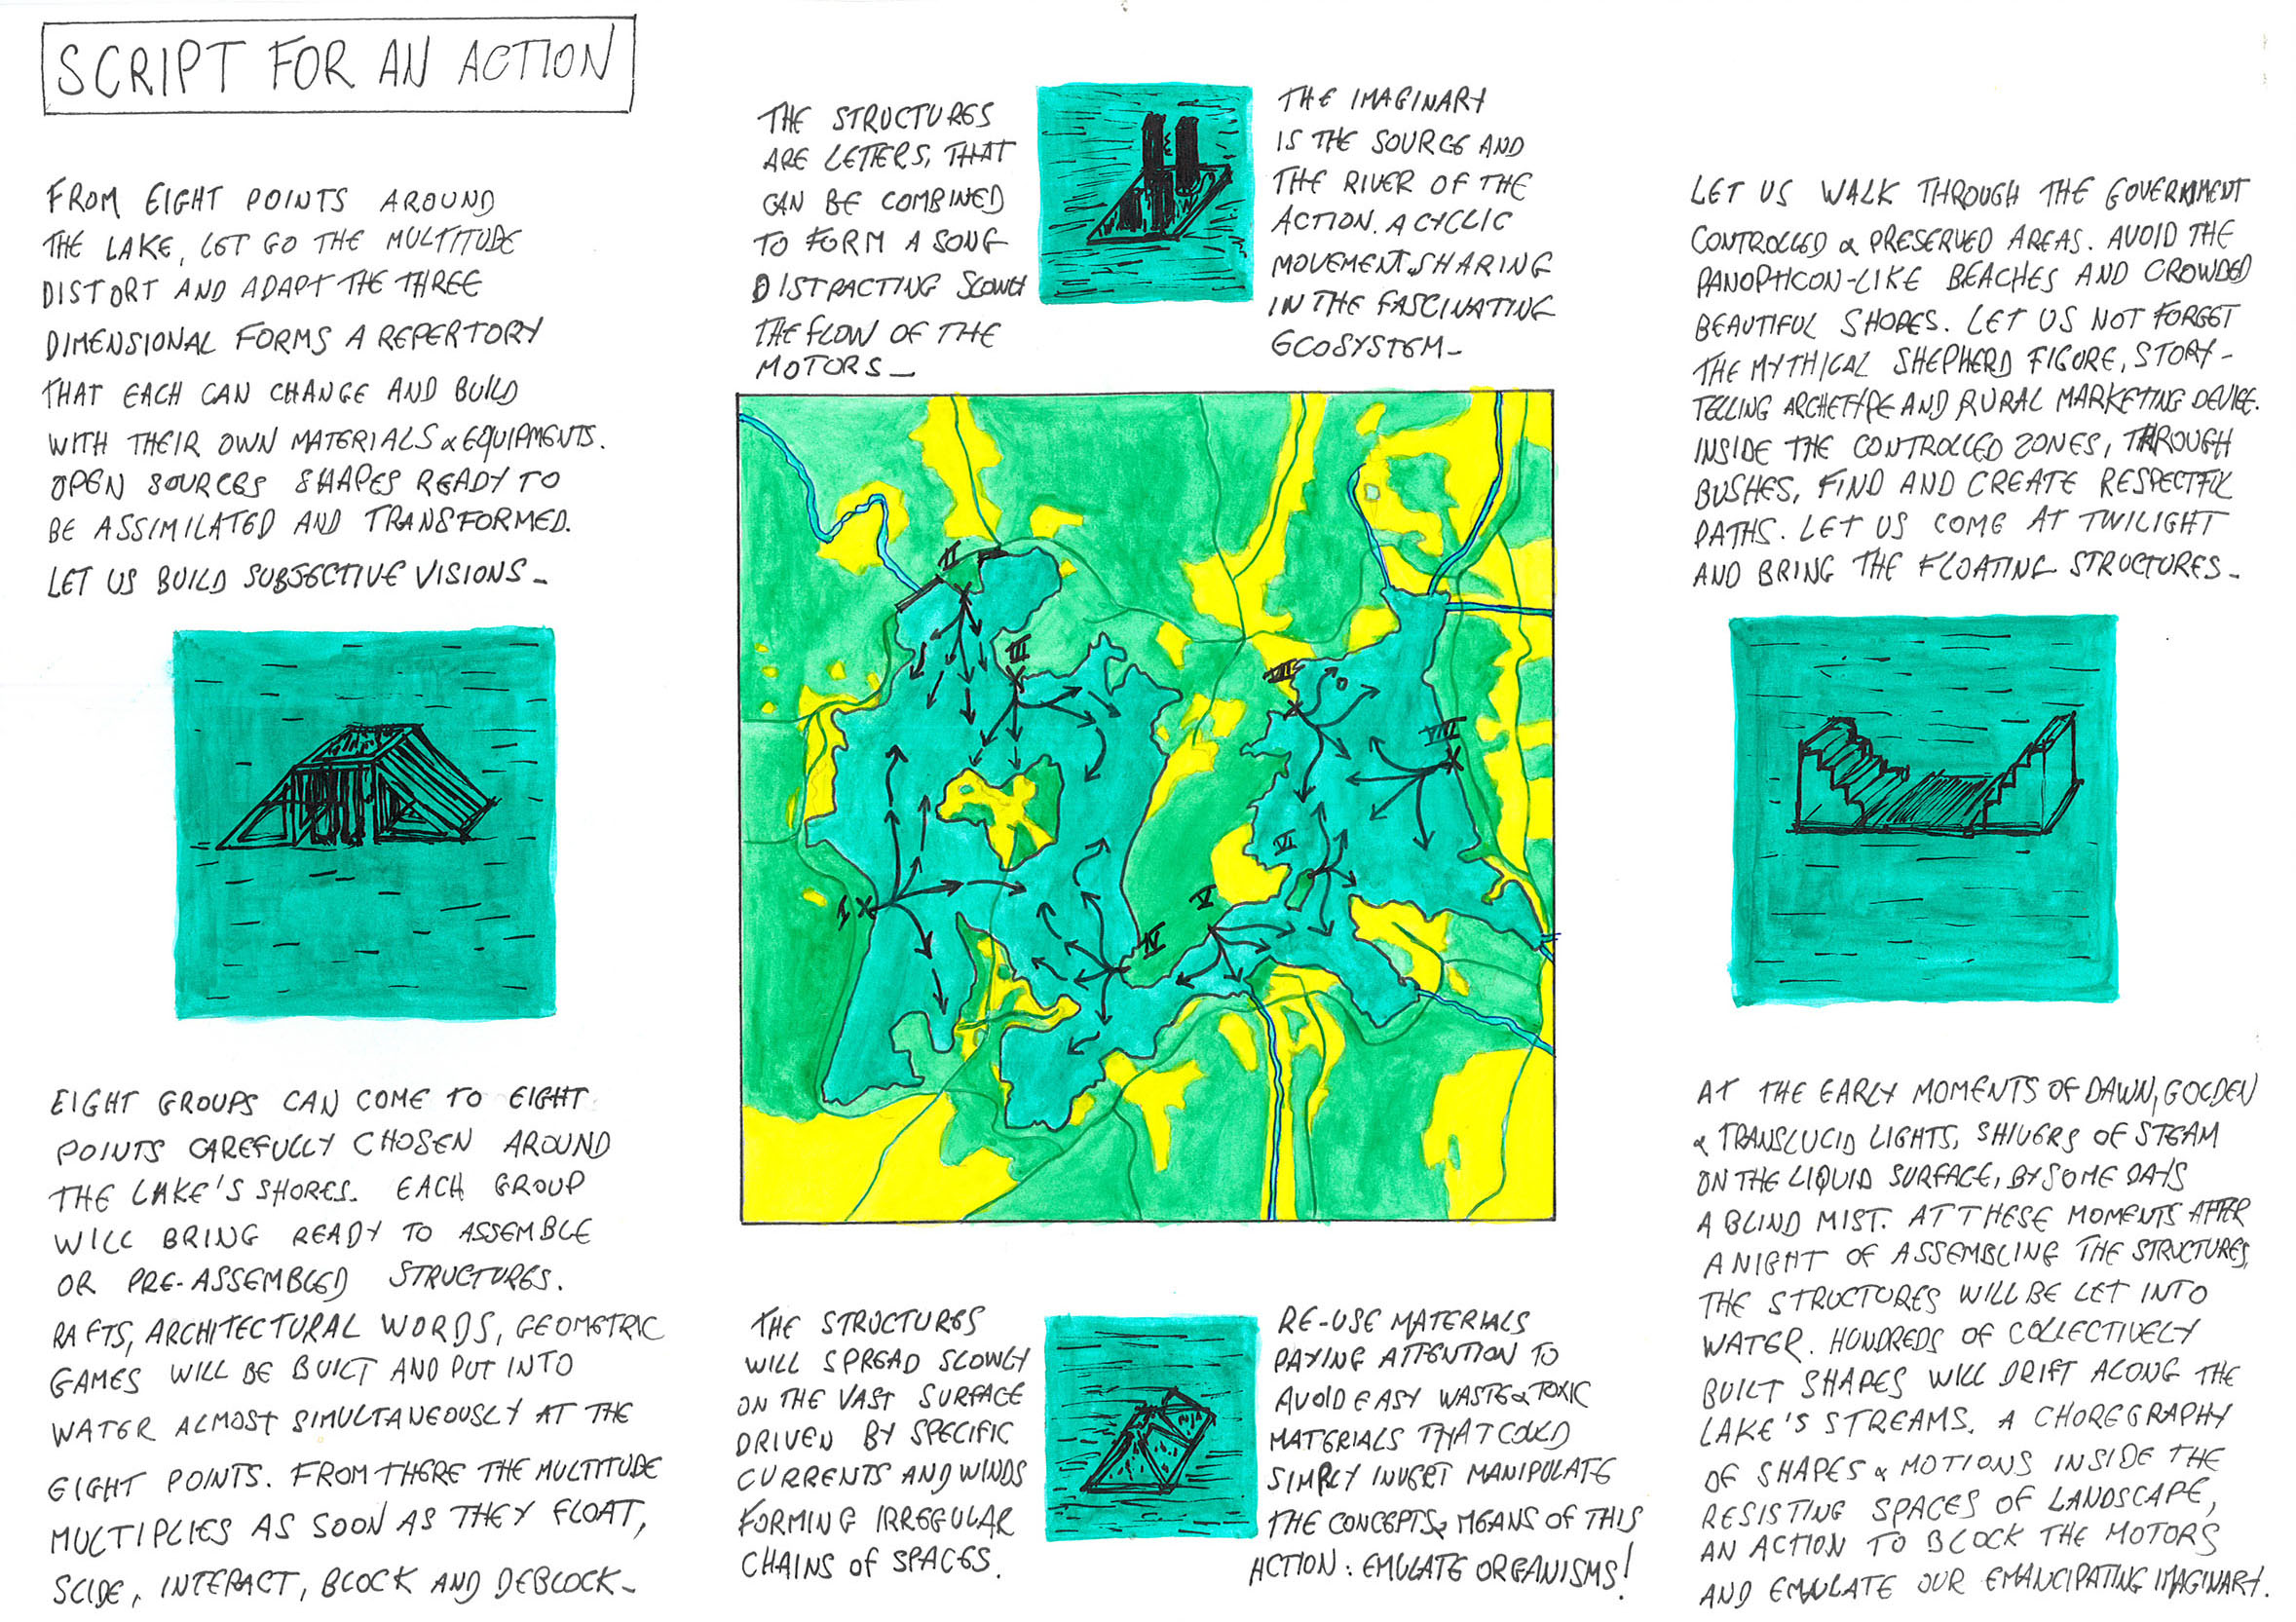 SCRIPT FOR AN ACTION
FROM EIGHT POINTS AROUND
THE LAKE, LET GO THE MULTITUDE
DISTORT AND ADAPT THE THREE
DIMENSIONAL FORMS A REPERTORY
THAT EACH CAN CHANGE AND BUILD
WITH THEIR OWN MATERIALS & EQUIPMENTS.
OPEN SOURCES SHAPES READY TO
BE ASSIMILATED AND TRANSFORMED.
LET US BUILD SUBJECTIVE VISIONS_
EIGHT GROUPS CAN COME TO EIGHT
POINTS CAREFULLY CHOSEN AROUND
THE LAKE'S SHORES. EACH GROUP
WILL BRING READY TO ASSEMBLE
OR PRE-ASSEMBLED STRUCTURES.
RAFTS, ARCHITECTURAL WORDS, GEOMETRIC
GAMES WILL BE BUILT AND PUT INTO
WATER ALMOST SIMULTANEOUSLY AT THE
EIGHT POINTS. FROM THERE THE MULTITUDE
MULTIPLIES AS SOON AS THEY FLOAT,
SLIDE, INTERACT, BLOCK AND DEBLOCK_
THE STRUCTURES
ARE LETTERS, THAT
CAN BE COMBINED
TO FORM A SONG
DISTRACTING SLOWLY
THE FLOW OF THE
MOTORS_
THE IMAGINARY
IS THE SOURCE AND
THE RIVER OF THE
ACTION. A CYCLIC
MOVEMENT, SHARING
IN THE FASCINATING
ECOSYSTEM_
II
III
VII
VIII
VI
I
V
IV
THE STRUCTURES
WILL SPREAD SLOWLY
ON THE VAST SURFACE
DRIVEN BY SPECIFIC
CURRENTS AND WINDS
FORMING IRREGULAR
CHAINS OF SPACES.
RE-USE MATERIALS
PAYING ATTENTION TO
AVOID EASY WASTE & TOXIC
MATERIALS THAT COULD
SIMPLY INVERT MANIPULATE
THE CONCEPTS & MEANS OF THIS
ACTION: EMULATE ORGANISMS!
LET US WALK THROUGH THE GOVERNMENT
CONTROLLED & PRESERVED AREAS. AVOID THE
PANOPTICON-LIKE BEACHES AND CROWDED
BEAUTIFUL SHORES. LET US NOT FORGET
THE MYTHICAL SHEPHERD FIGURE, STORY-
TELLING ARCHETYPE AND RURAL MARKETING DEVICE.
INSIDE THE CONTROLLED ZONES, THROUGH
BUSHES, FIND AND CREATE RESPECTFUL
PATHS. LET US COME AT TWILIGHT
AND BRING THE FLOATING STRUCTURES_
AT THE EARLY MOMENTS OF DAWN, GOLDEN
& TRANSLUCID LIGHTS, SHIVERS OF STEAM
ON THE LIQUID SURFACE, BY SOME DAYS
A BLIND MIST. AT THESE MOMENTS AFTER
A NIGHT OF ASSEMBLING THE STRUCTURES,
THE STRUCTURES WILL BE LET INTO
WATER. HUNDREDS OF COLLECTIVELY
BUILT SHAPES WILL DRIFT ALONG THE
LAKE'S STREAMS. A CHOREGRAPHY
OF SHAPES & MOTIONS INSIDE THE
RESISTING SPACES OF LANDSCAPE,
AN ACTION TO BLOCK THE MOTORS
AND EMULATE OUR EMANCIPATING IMAGINARY.